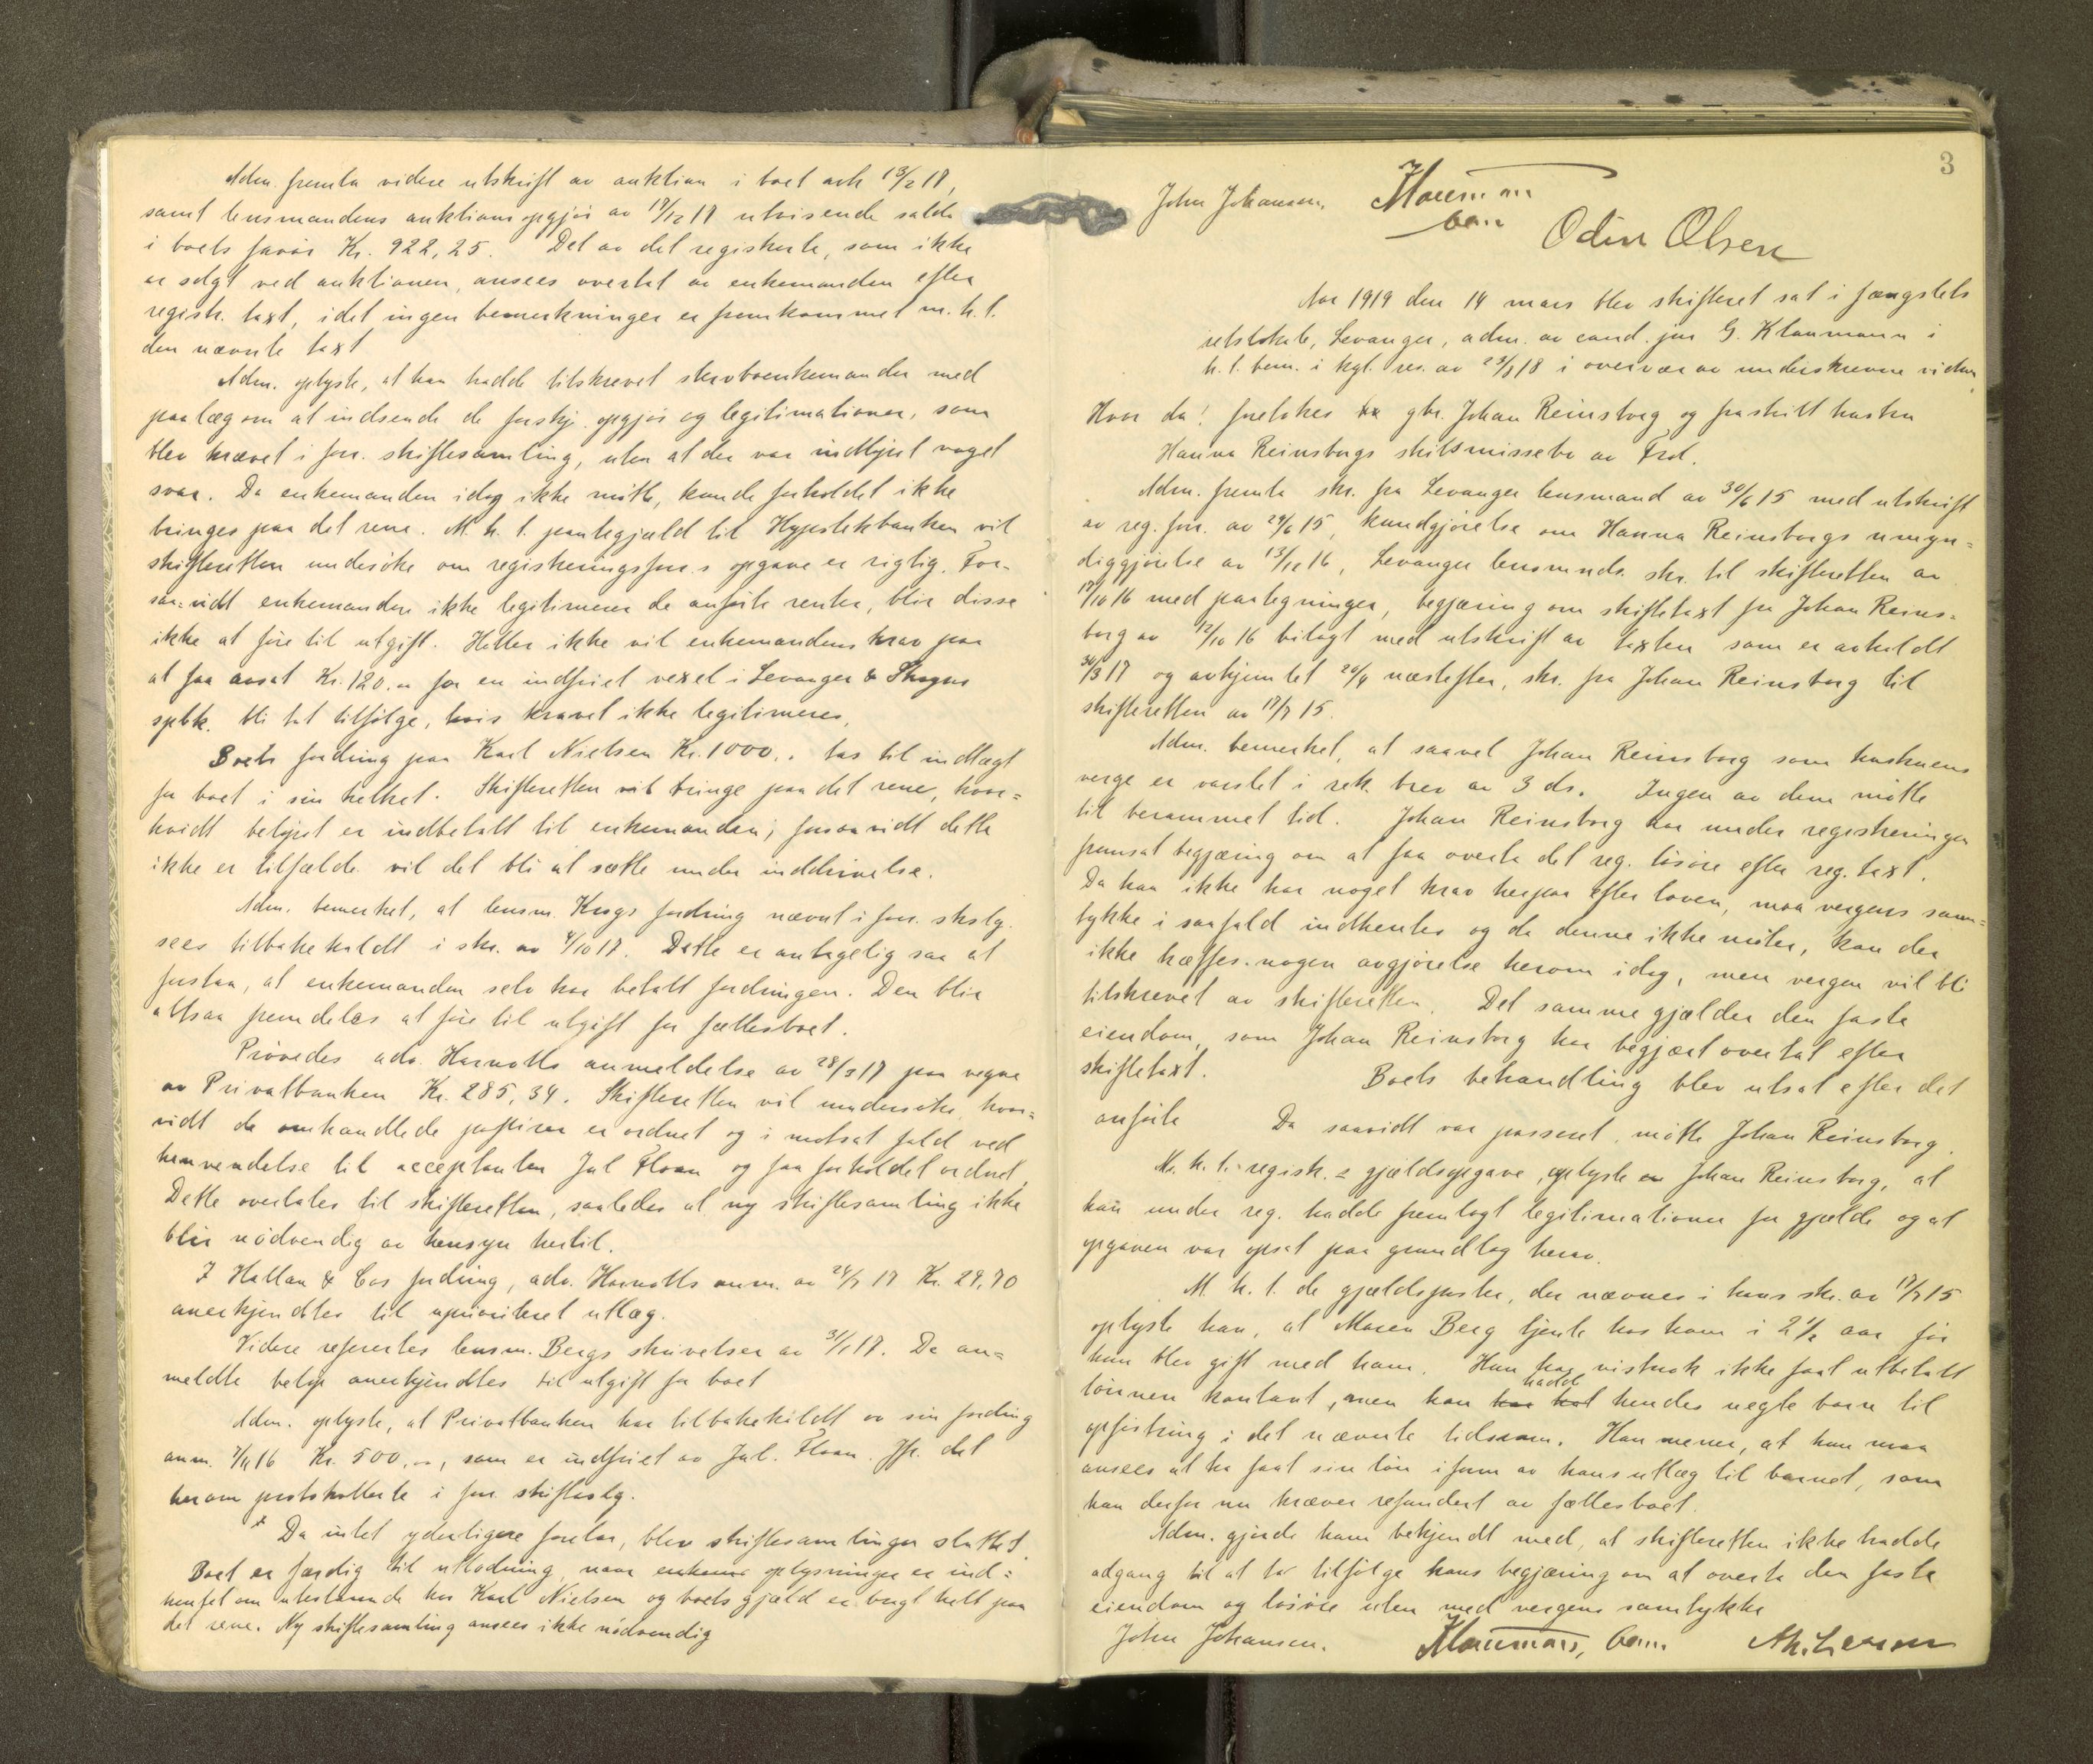 Adm. fremla videre utskrift av auktion i boet avh 13/2 17,
samt lensmandens auktionsopgjør av 17/12 17 utvisende saldo
i boets favør Kr. 922,25. Det av det registrerte, som ikke
er solgt ved auktionen, ansees overtat av enkemanden efter
registr. taxt, idet ingen bemerkninger er fremkommet m.h.t.
den nævnte taxt
Adm. oplyste, at han hadde tilskrevet skovboenkemanden med
paalæg om at indsende de forskj. opgjør og legitimationer, som
blev krævet i forr. skiftesamling, uten at der var indløpet noget
svar. Da enkemanden idag ikke møtte, kunde forholdet ikke
bringes paa det rene. M.h.t. pantegjæld til Hypotekbanken vil
skifteretten undersøke om registreringsforr.s opgave er rigtig. For-
saavidt enkemanden ikke legitimerer de anførte renter, blir disse
ikke at føre til utgift. Heller ikke vil enkemandens krav paa
at faa avsat Kr. 120.00 for en indfriet vexel i Levanger & Skogns
spbk. bli tat tilfølge, hvis kravet ikke legitimeres.
Boets fordring paa Karl Nielsen Kr. 1000.. tas til indtægt
for boet i sin helhet. Skifteretten vil bringe paa det rene, hvor=
hvidt beløpet er indbetalt til enkemanden; forsaavidt dette
ikke er tilfælde vil det bli at sætte under inddrivelse.
Adm. bemerket, at lensm. Krogs fordring nævnt i forr. skslg.
sees tilbakekaldt i skr. av 4/10 17. Dette er antagelig saa at
forstaa, at enkemanden selv har betalt fordringen. Den blir
altsaa fremdeles at føre til utgift for fællesboet.
Prøvedes adv. Harnolls anmeldelse av 28/3 17 paa vegne
av Privatbanken Kr. 285,34. Skifteretten vil undersøke, hvor=
vidt de omhandlede papirer er ordnet og i motsat fald ved
henvendelse til acceptanten Jul Floan og faa forholdet ordnet.
Dette overlates til skifteretten, saaledes at ny skiftesamling ikke
blir nødvendig av hensyn hertil.
I Hallan & Cos fordring, adv. Harnolls anm. av 24/3 17 Kr. 29.70
anerkjendtes til uprioritert utlæg.
Videre refertes lensm. Bergs skrivelser av 31/1 17. De an=
meldte beløp anerkjendtes til utgift for boet
Adm. oplyste, at Privatbanken har tilbakekaldt av sin fordring
anm. 4/11 16 Kr. 500.00, som er indfriet av Jul. Floan. Jfr. det
herom protokollerte i forr. skifteslg.
Da intet yderligere forelaa, blev skiftesamlingen sluttet.
Boet er færdig til utlodning, naar oplysninger er ind=
hentet om utestaaende hos Karl Nielsen og boets gjæld er bragt helt paa
det rene. Ny skiftesamling ansees ikke nødvendig
3
John Johansen. Klaumann
bem. Odin Olsen
Aar 1919 den 14 mars blev skifteret sat i fængslets
retslokale, Levanger, adm. av cand. jur G. Klaumann i
h.t. bem. i kgl. res. av 23/8 18 i overvær av underskrevne vidner,
Hvor da! foretokes gbr. Johan Reinsborg og fraskilt hustru
Hanna Reinsborgs skilsmissebo av Frol.
Adm. fremla skr. fra Levanger lensmand av 30/6 15 med utskrift
av reg. forr. av 29/6 15, kundgjørelse om Hanna Reinsborgs umyn=
diggjørelse av 13/12 16, Levanger lensmnds. skr. til skifteretten av
17/10 16 med paategninger, begjæring om skiftetaxt fra Johan Reins-
borg av 12/10 16 bilagt med utskrift av taxten som er avholdt
30/3 17 og avhjemlet 20/4 næstefter, skr. fra Johan Reinsborg til
skifteretten av 17/7 15.
Adm. bemerket, at saavel Johan Reinsborg som hustruens
verge er varslet i rek. brev av 3 ds. Ingen av dem møtte
til berammet tid. Johan Reinsborg har under registreringen
fremsat begjæring om at faa overta det reg. løsøre efter reg. taxt.
Da han ikke har noget krav herpaa efter loven, maa vergens sam=
tykke i saafald indhentes og da denne ikke møter, kan der
ikke træffes nogen avgjørelse herom idag, men vergen vil bli
tilskrevet av skifteretten. Det samme gjælder den faste
eiendom, som Johan Reinsborg har begjært overtat efter
skiftetaxt. Boets behandling blev utsat efter det
anførte Da saavidt var passeret, møtte Johan Reinsborg.
M.h.t. registr.s gjældsopgave, oplyste Johan Reinsborg, at
han under reg. hadde fremlagt legitimationer for gjælde og at
opgaven var opsat paa grundlag herav.
M.h.t. de gjældsposter, der nævnes i hans skr. av 17/7 15
oplyste han, at Maren Berg tjente hos ham i 2 1/2 aar før
hun blev gift med ham. Hun har vistnok ikke faat utbetalt
lønnen kontant, men han hadde hendes uegte barn til
opfostring i det nævnte tidsrum. Han mener, at hun maa
ansees at ha faat sin løn i form av hans utlæg til barnet, som
han derfor nu kræver refundert av fællesboet.
Adm. gjorde ham bekjendt med, at skifteretten ikke hadde
adgang til at ta tilfølge hans begjæring om at overta den faste
eiendom og løsøre uten med vergens samtykke
John Johansen. Klaumann, bem.